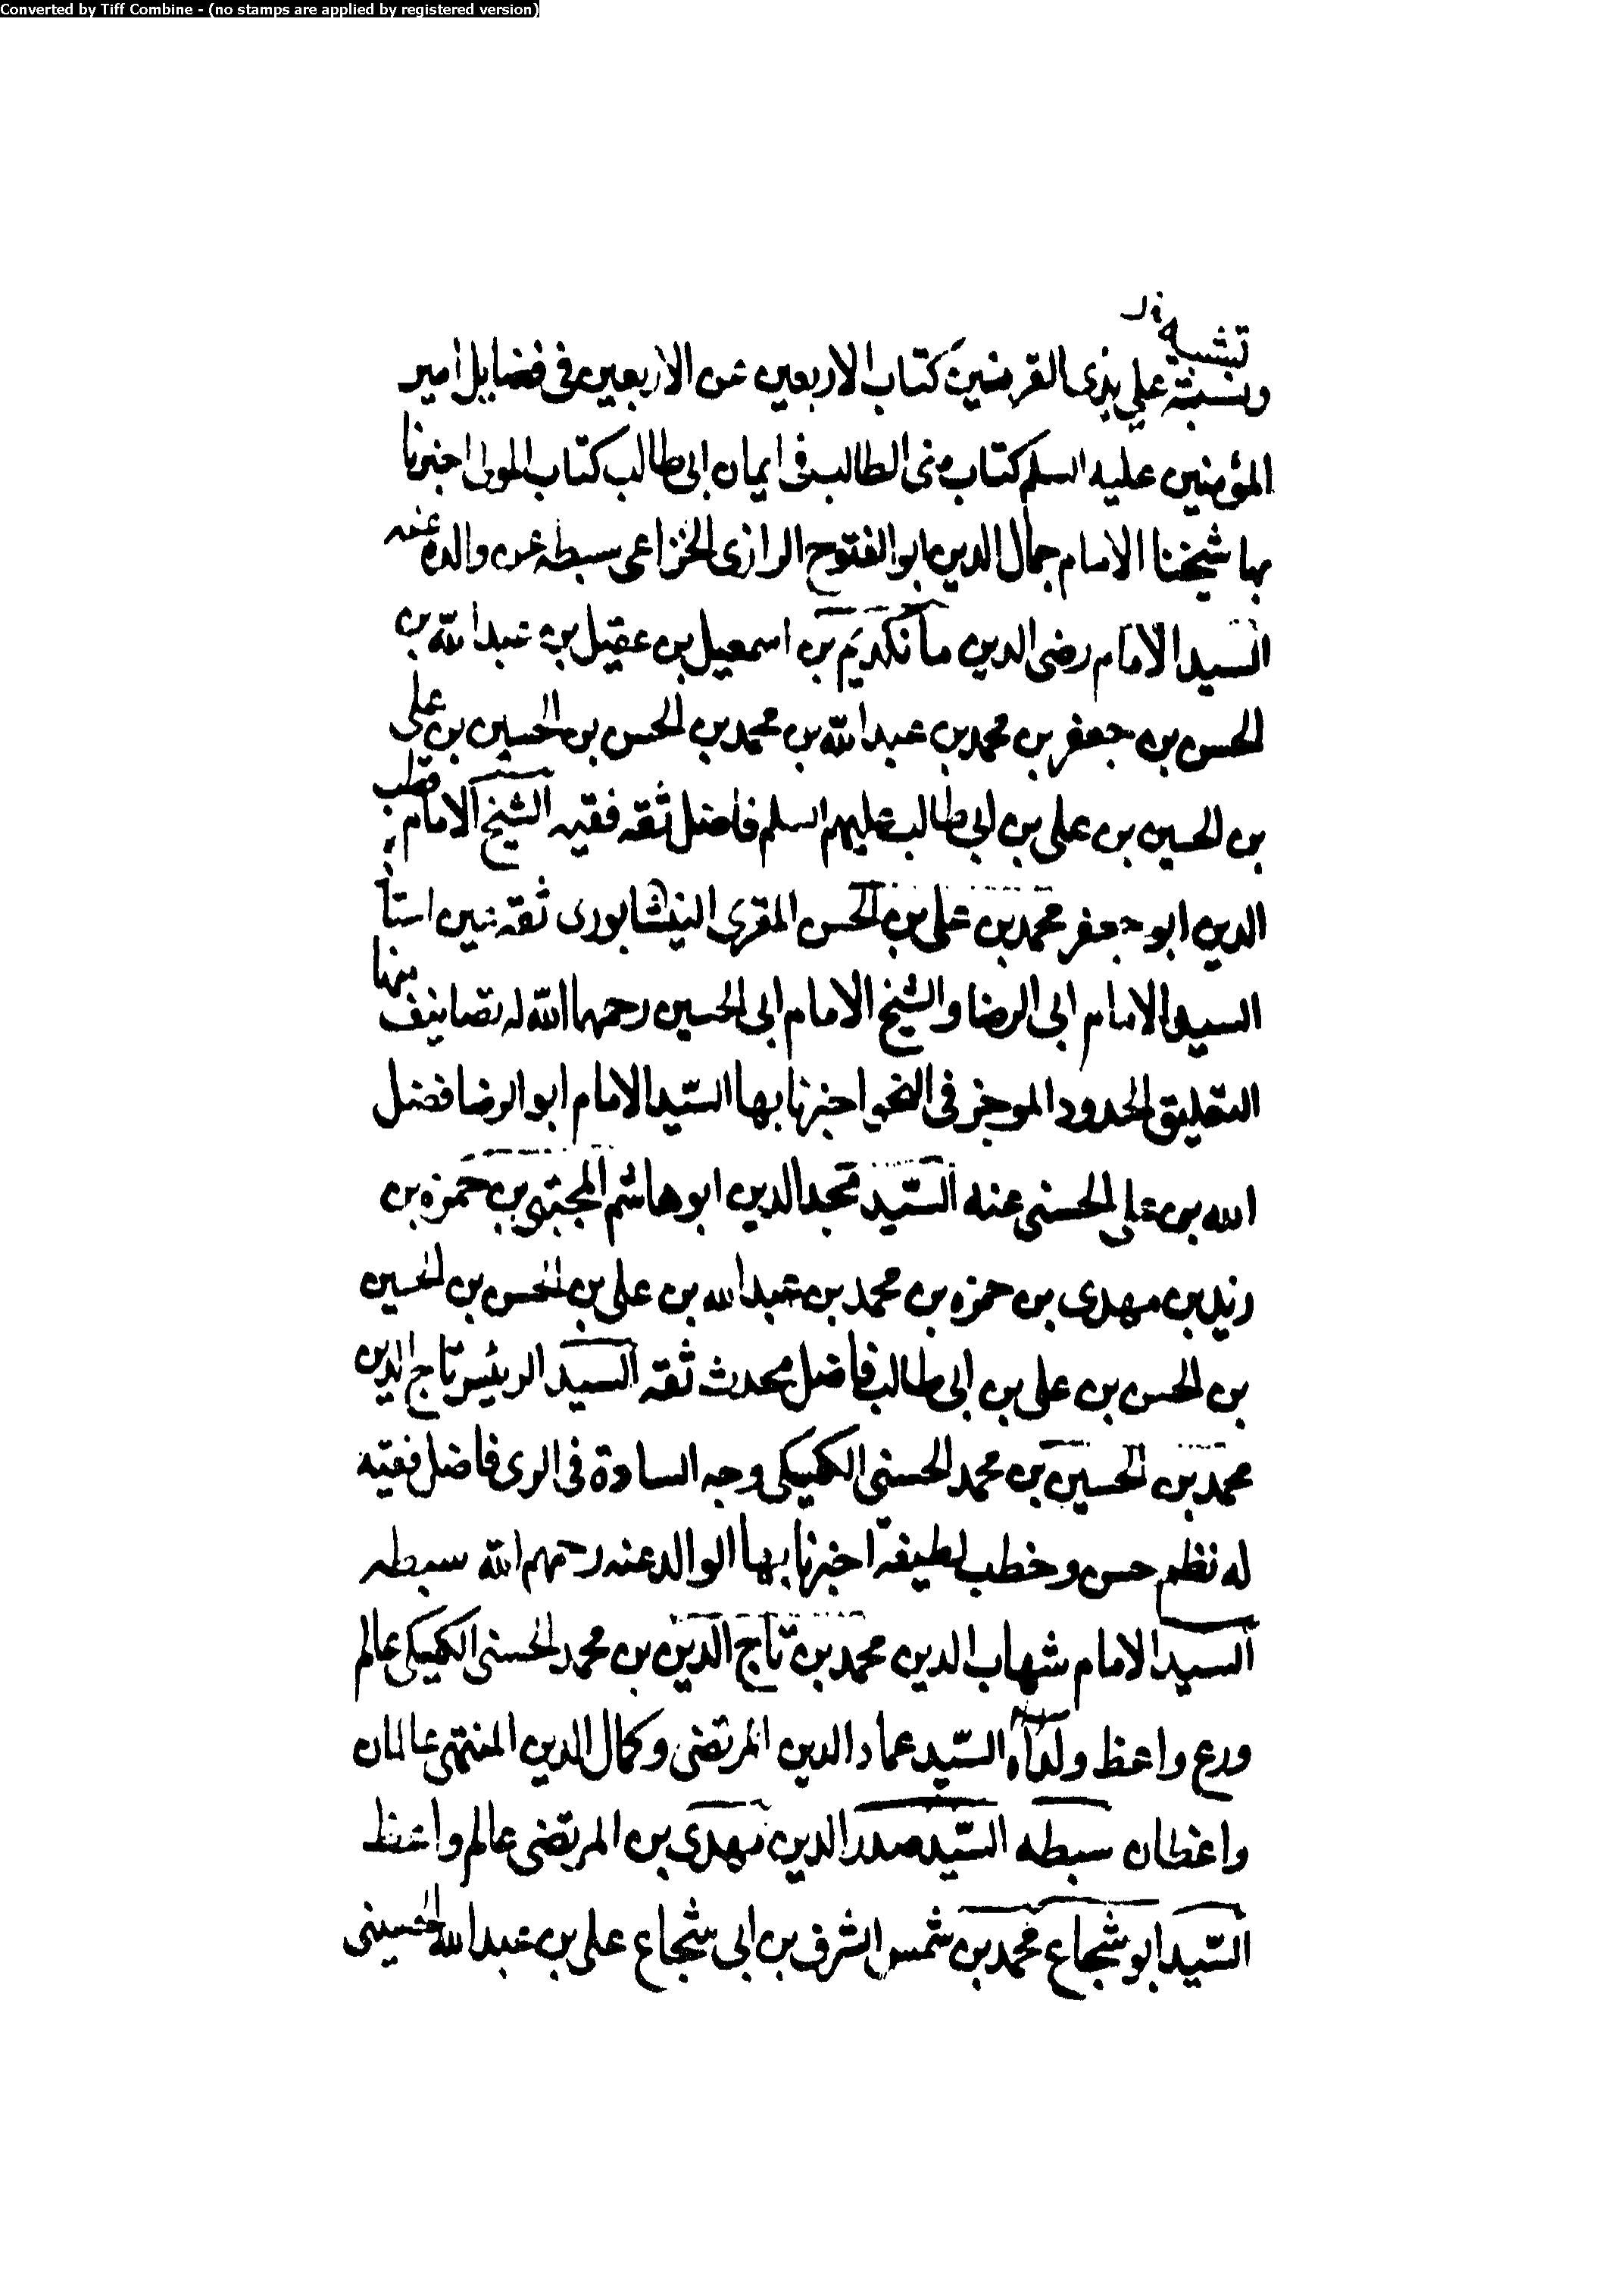 Converted by Tiff Combine - (no stamps are applied by registered version)
تشبيه
ونسبة علي بذى القرنين كتاب الاربعين عن الاربعين فى فضايل امير
المؤمنين عليه السلم كتاب منى الطالب فى ايمان ابى طالب كتاب المولى اخبرنا
بها شيخنا الامام جمال الدين ابو الفتوح الرازى الخزاعى سبطه عن والده عنه
السيد الامام رضى الدين مانكديم بن اسمعيل بن عقيل بن عبد الله بن
الحسن بن جعفر بن محمد بن عبد الله بن محمد بن الحسن بن الحسين بن على
بن الحسين بن على بن ابى طالب عليهم السلم فاضل ثقه فقيه الشيخ الامام قطب
الدين ابو جعفر محمد بن على بن الحسن المقرى النيشابورى ثقه عين استاذ
السيد الامام ابى الرضا والشيخ الامام ابى الحسين رحمهما الله له تصانيف منها
التعليق الحدود الموجز فى النحو اخبرنا بها السيد الامام ابو الرضا فضل
الله بن على الحسنى عنه السيد مجد الدين ابو هاشم المجتبى بن حمزه بن
زيد بن مهدى بن حمزه بن محمد بن عبد الله بن على بن الحسن بن الحسين
بن الحسن بن على بن ابى طالب فاضل محدث ثقه السيد الرئيس تاج الدين
محمد بن الحسين بن محمد الحسنى الكيكى وجه السادة فى الرى فاضل فقيه
له نظم حسن وخطب لطيفة اخبرنا بها الوالد عنه رحمهم الله سبطه
السيد الامام شهاب الدين محمد بن تاج الدين بن محمد الحسنى الكيكى عالم
ورع واعظ ولداه السيد عماد الدين المرتضى وكمال الدين المنتهى عالمان
واعظان سبطه السيد صدر الدين مهدى بن المرتضى عالم واعظ
السيد ابو شجاع محمد بن شمس الشرف بن ابى شجاع على بن عبد الله الحسينى